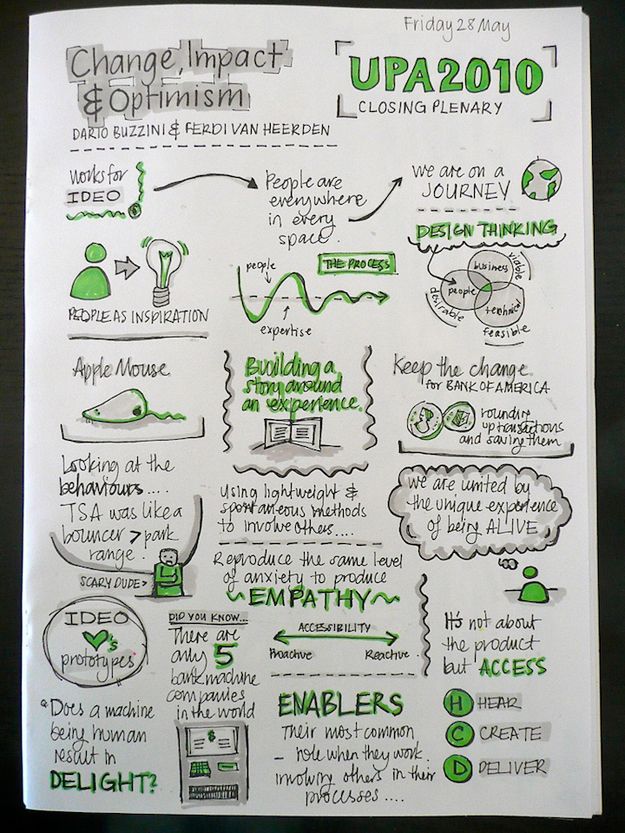 Friday 28 May
Change, Impact
& Optimism
UPA2010
CLOSING PLENARY
DARIO BUZZINI & FERDI VAN HEERDEN
Works for
IDEO
People are
everywhere
in every
space.
we are on a
JOURNEY
PEOPLE AS INSPIRATION
people
THE PROCESS
expertise
DESIGN THINKING
business
viable
people
technical
desirable
feasible
Apple Mouse
Building a
story around
an experience.
Keep the change
for BANK OF AMERICA
rounding
up transactions
and saving them
Looking at the
behaviours....
TSA was like a
bouncer > park
range?
SCARY DUDE>
Using lightweight &
spontaneous methods
to involve others....
we are united by
the unique experience
of being ALIVE
Reproduce the same level
of anxiety to produce
EMPATHY
ACCESSIBILITY
Proactive
Reactive
It's not about
the product
but ACCESS
IDEO
's
prototypes
DID YOU KNOW...
There are
only 5
bank machine
companies
in the world
$
"Does a machine
being human
result in
DELIGHT?
ENABLERS
Their most common
role when they work
involving others in their
processes....
H HEAR
C CREATE
D DELIVER